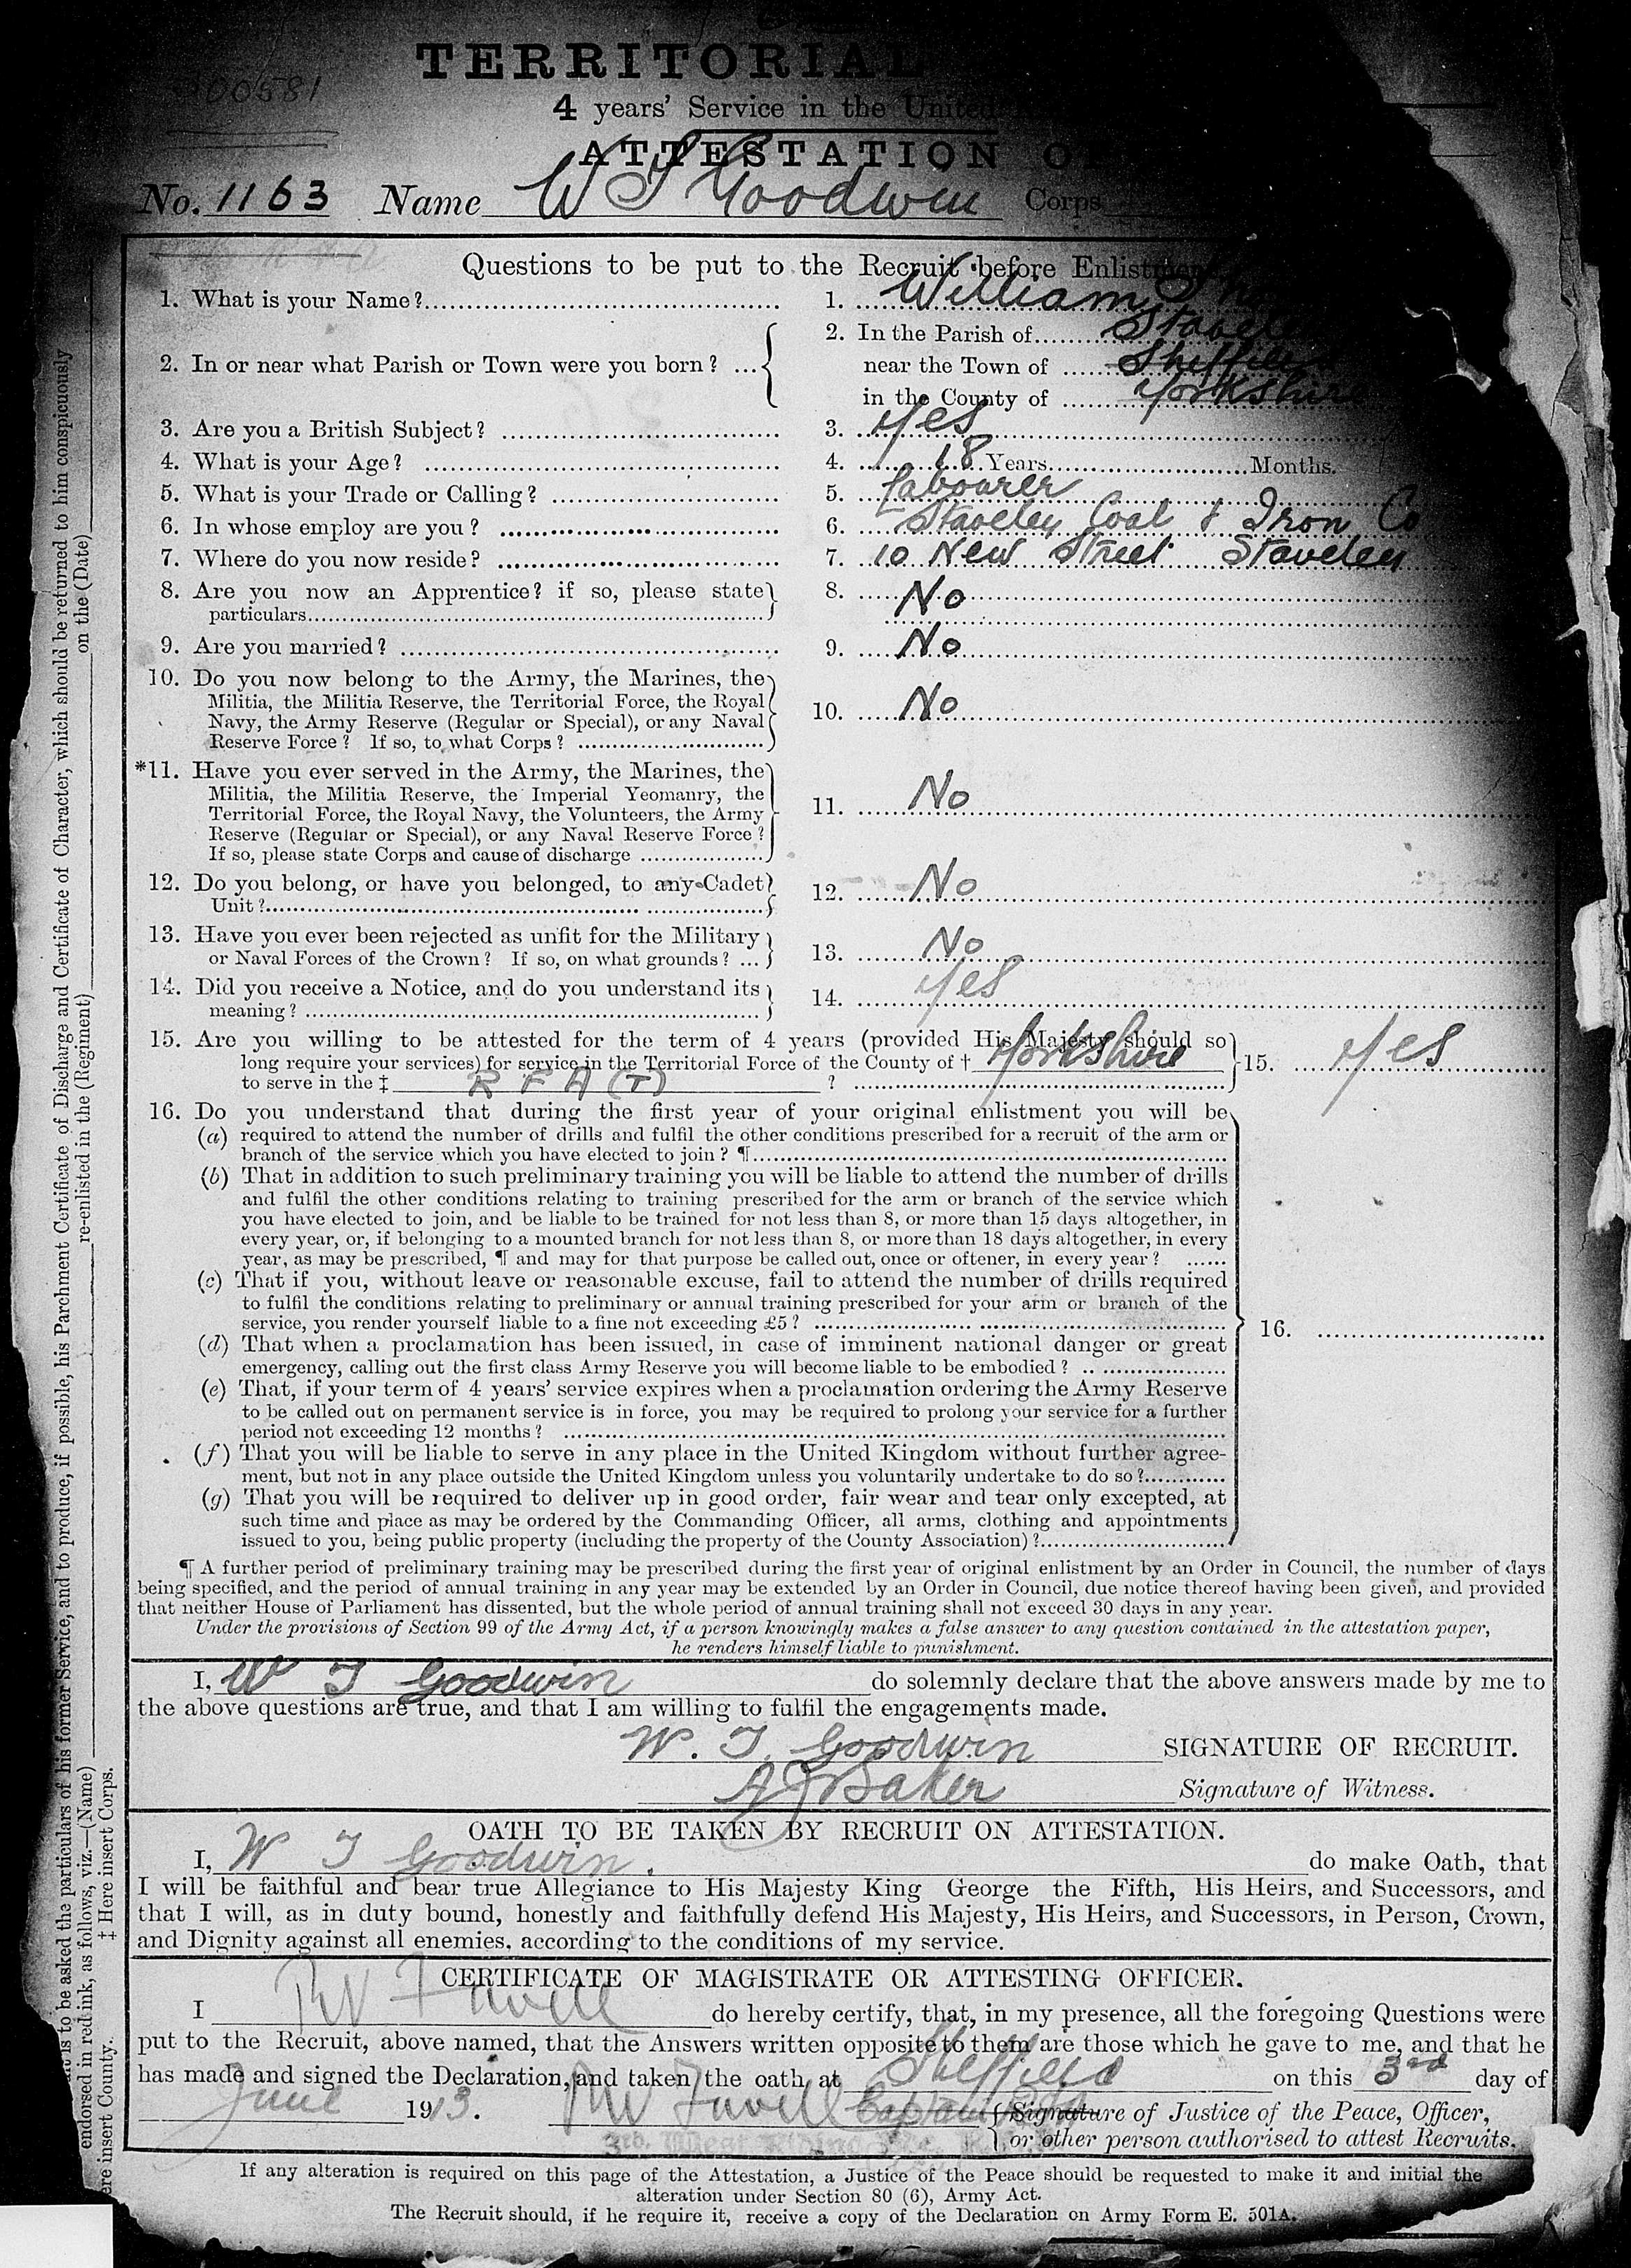 TERRITORIAL
4 years' Service in the United
ATTESTATION O
No. 1163 Name W T Goodwin Corps
Questions to be put to the Recruit before Enlistment
1. What is your Name? 1. William
2. In or near what Parish or Town were you born? ... 2. In the Parish of Staveley
near the Town of Sheffield
in the County of Yorkshire
3. Are you a British Subject? 3. Yes
4. What is your Age? 4. 18 Years Months.
5. What is your Trade or Calling? 5. Labourer
6. In whose employ are you? 6. Staveley Coal & Iron Co
7. Where do you now reside? 7. 10 New Street Staveley
8. Are you now an Apprentice? if so, please state particulars 8. No
9. Are you married? 9. No
10. Do you now belong to the Army, the Marines, the
Militia, the Militia Reserve, the Territorial Force, the Royal
Navy, the Army Reserve (Regular or Special), or any Naval
Reserve Force? If so, to what Corps? 10. No
*11. Have you ever served in the Army, the Marines, the
Militia, the Militia Reserve, the Imperial Yeomanry, the
Territorial Force, the Royal Navy, the Volunteers, the Army
Reserve (Regular or Special), or any Naval Reserve Force?
If so, please state Corps and cause of discharge 11. No
12. Do you belong, or have you belonged, to any Cadet
Unit? 12. No
13. Have you ever been rejected as unfit for the Military
or Naval Forces of the Crown? If so, on what grounds? ... 13. No
14. Did you receive a Notice, and do you understand its
meaning? 14. Yes
15. Are you willing to be attested for the term of 4 years (provided His Majesty should so
long require your services) for service in the Territorial Force of the County of † Yorkshire
to serve in the ‡ R F A (T) ? 15. Yes
16. Do you understand that during the first year of your original enlistment you will be
(a) required to attend the number of drills and fulfil the other conditions prescribed for a recruit of the arm or
branch of the service which you have elected to join? ¶
(b) That in addition to such preliminary training you will be liable to attend the number of drills
and fulfil the other conditions relating to training prescribed for the arm or branch of the service which
you have elected to join, and be liable to be trained for not less than 8, or more than 15 days altogether, in
every year, or, if belonging to a mounted branch for not less than 8, or more than 18 days altogether, in every
year, as may be prescribed, ¶ and may for that purpose be called out, once or oftener, in every year?
(c) That if you, without leave or reasonable excuse, fail to attend the number of drills required
to fulfil the conditions relating to preliminary or annual training prescribed for your arm or branch of the
service, you render yourself liable to a fine not exceeding £5?
16.
(d) That when a proclamation has been issued, in case of imminent national danger or great
emergency, calling out the first class Army Reserve you will become liable to be embodied?
(e) That, if your term of 4 years' service expires when a proclamation ordering the Army Reserve
to be called out on permanent service is in force, you may be required to prolong your service for a further
period not exceeding 12 months?
(f) That you will be liable to serve in any place in the United Kingdom without further agree-
ment, but not in any place outside the United Kingdom unless you voluntarily undertake to do so?
(g) That you will be required to deliver up in good order, fair wear and tear only excepted, at
such time and place as may be ordered by the Commanding Officer, all arms, clothing and appointments
issued to you, being public property (including the property of the County Association)?
¶ A further period of preliminary training may be prescribed during the first year of original enlistment by an Order in Council, the number of days
being specified, and the period of annual training in any year may be extended by an Order in Council, due notice thereof having been given, and provided
that neither House of Parliament has dissented, but the whole period of annual training shall not exceed 30 days in any year.
Under the provisions of Section 99 of the Army Act, if a person knowingly makes a false answer to any question contained in the attestation paper,
he renders himself liable to punishment.
I, W T Goodwin do solemnly declare that the above answers made by me to
the above questions are true, and that I am willing to fulfil the engagements made.
W. T. Goodwin SIGNATURE OF RECRUIT.
A J Baker Signature of Witness.
OATH TO BE TAKEN BY RECRUIT ON ATTESTATION.
I, W T Goodwin. do make Oath, that
I will be faithful and bear true Allegiance to His Majesty King George the Fifth, His Heirs, and Successors, and
that I will, as in duty bound, honestly and faithfully defend His Majesty, His Heirs, and Successors, in Person, Crown,
and Dignity against all enemies, according to the conditions of my service.
CERTIFICATE OF MAGISTRATE OR ATTESTING OFFICER.
I do hereby certify, that, in my presence, all the foregoing Questions were
put to the Recruit, above named, that the Answers written opposite to them are those which he gave to me, and that he
has made and signed the Declaration, and taken the oath at Sheffield on this 3rd day of
June 1913. Captain Signature of Justice of the Peace, Officer,
3rd West Riding or other person authorised to attest Recruits.
If any alteration is required on this page of the Attestation, a Justice of the Peace should be requested to make it and initial the
alteration under Section 80 (6), Army Act.
The Recruit should, if he require it, receive a copy of the Declaration on Army Form E. 501A.
is to be asked the particulars of his former Service, and to produce, if possible, his Parchment Certificate of Discharge and Certificate of Character, which should be returned to him conspicuously
endorsed in red ink, as follows, viz.—(Name) re-enlisted in the (Regiment) on the (Date)
ere insert County. ‡ Here insert Corps.